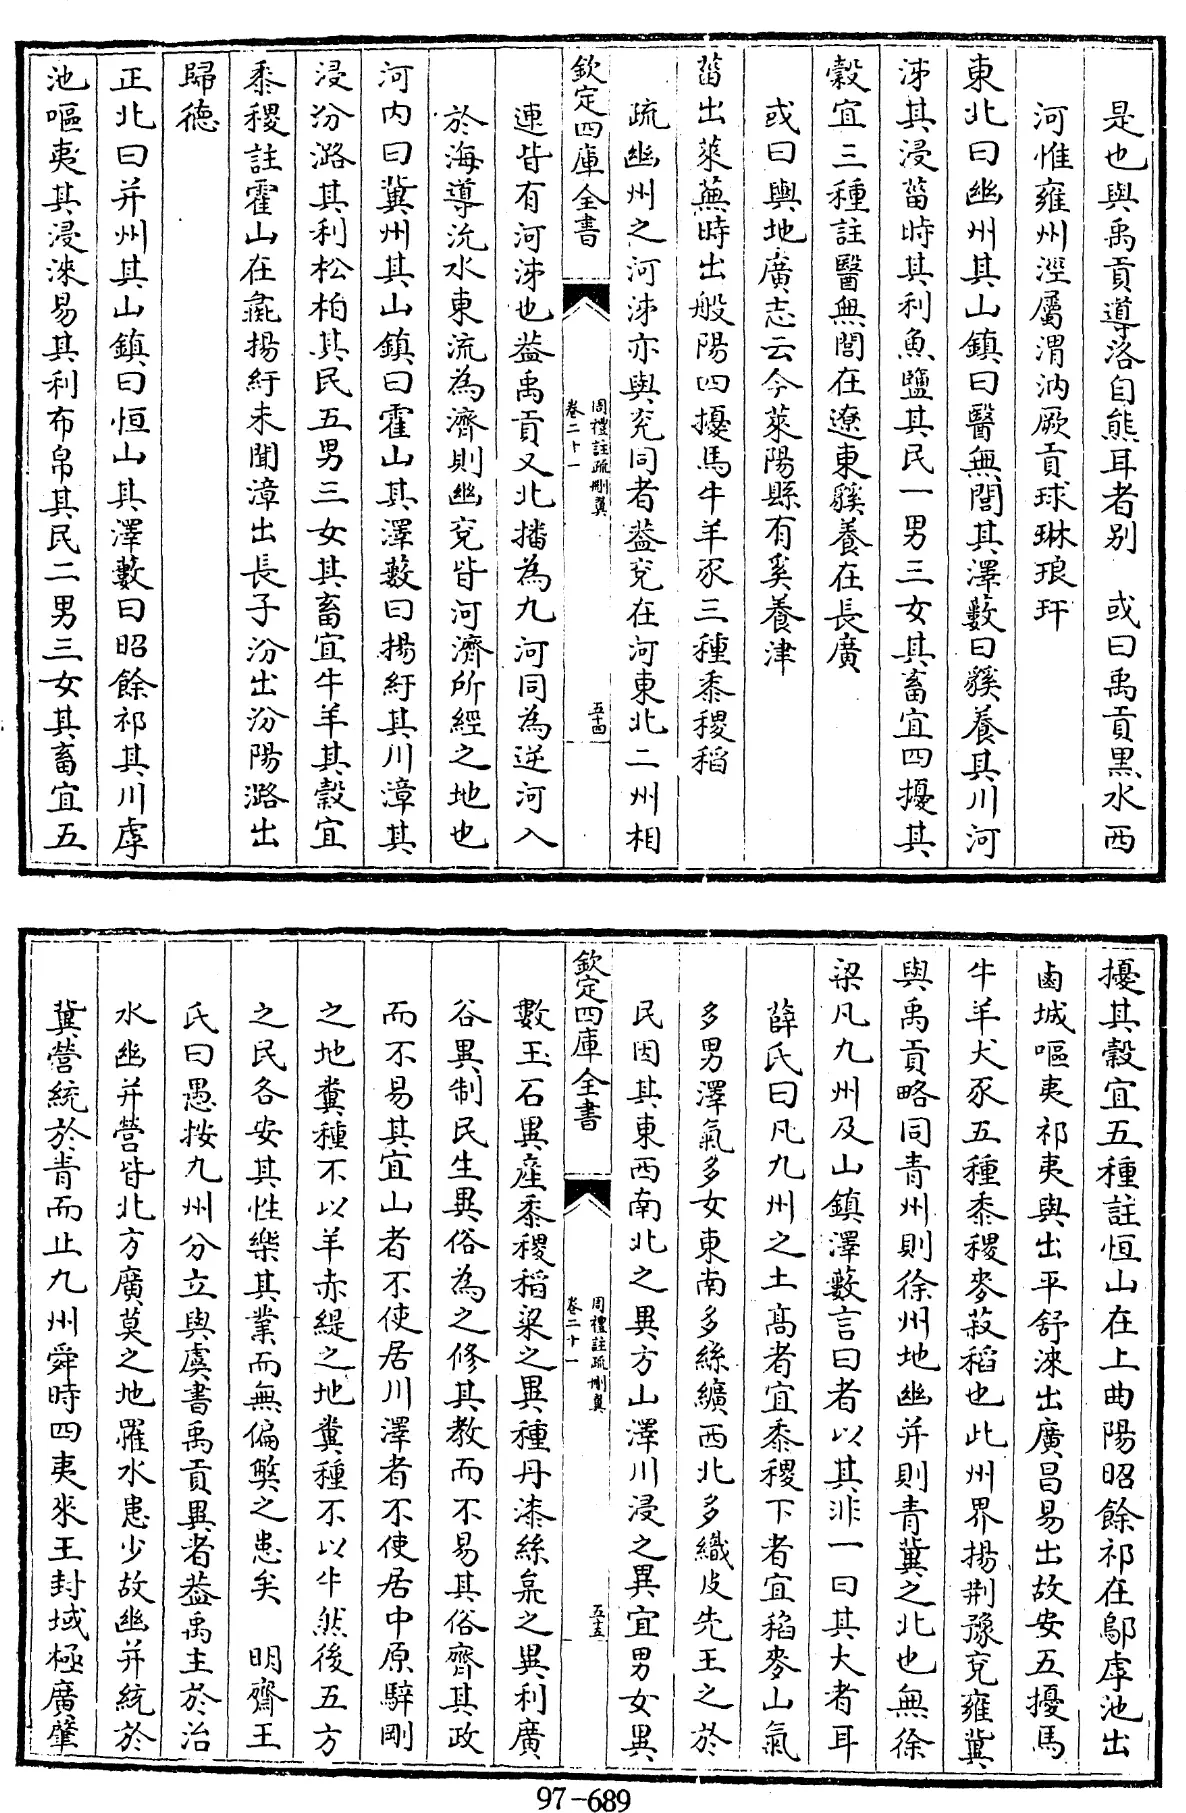 是也與禹貢導洛自熊耳者别　或曰禹貢黑水西
河惟雍州涇屬渭汭厥貢球琳琅玕
東北曰幽州其山鎮曰醫無閭其澤藪曰貕養其川河
泲其浸菑時其利魚鹽其民一男三女其畜宜四擾其
穀宜三種註醫無閭在遼東貕養在長廣
或曰輿地廣志云今萊陽縣有奚養津
菑出萊蕪時出般陽四擾馬牛羊豕三種黍稷稻
疏幽州之河泲亦與兖同者葢兖在河東北二州相
欽定四庫全書
周禮註疏刪翼
卷二十一
五十四
連皆有河泲也葢禹貢又北播為九河同為逆河入
於海導沇水東流為濟則幽兖皆河濟所經之地也
河内曰冀州其山鎮曰霍山其澤藪曰揚紆其川漳其
浸汾潞其利松柏其民五男三女其畜宜牛羊其穀宜
黍稷註霍山在彘揚紆未聞漳出長子汾出汾陽潞出
歸德
正北曰并州其山鎮曰恒山其澤藪曰昭餘祁其川虖
池嘔夷其浸淶易其利布帛其民二男三女其畜宜五
擾其穀宜五種註恒山在上曲陽昭餘祁在鄔虖池出
鹵城嘔夷祁夷與出平舒淶出廣昌易出故安五擾馬
牛羊犬豕五種黍稷麥菽稻也此州界揚荆豫兖雍冀
與禹貢略同青州則徐州地幽并則青冀之北也無徐
梁凡九州及山鎮澤藪言曰者以其非一曰其大者耳
薛氏曰凡九州之土髙者宜黍稷下者宜稻麥山氣
多男澤氣多女東南多絲纊西北多織皮先王之於
民因其東西南北之異方山澤川浸之異宜男女異
欽定四庫全書
周禮註疏刪翼
卷二十一
五十五
數玉石異産黍稷稻粱之異種丹漆絲枲之異利廣
谷異制民生異俗為之修其教而不易其俗齊其政
而不易其宜山者不使居川澤者不使居中原騂剛
之地糞種不以羊赤緹之地糞種不以牛然後五方
之民各安其性樂其業而無偏獘之患矣　明齋王
氏曰愚按九州分立與虞書禹貢異者葢禹主於治
水幽并營皆北方廣莫之地罹水患少故幽并統於
冀營統於青而止九州舜時四夷來王封域極廣肇
97-689